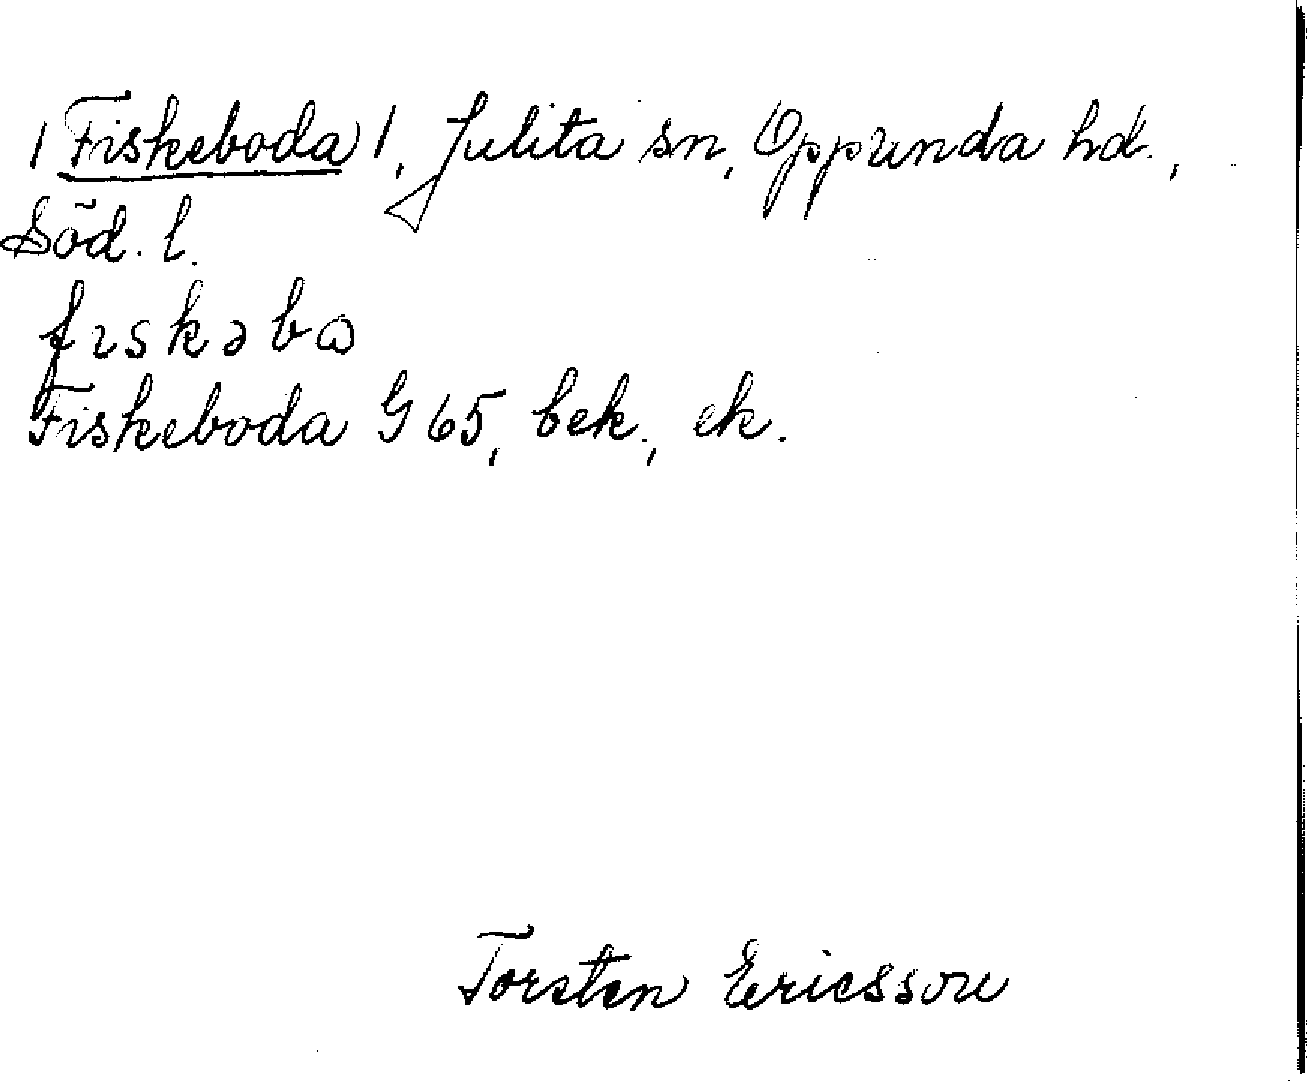 / Fiskeboda /, Julita sn, Oppunda hd.,
Söd. l.
fıskəbω
Fiskeboda G 65, bek., ek.
Torsten Ericsson